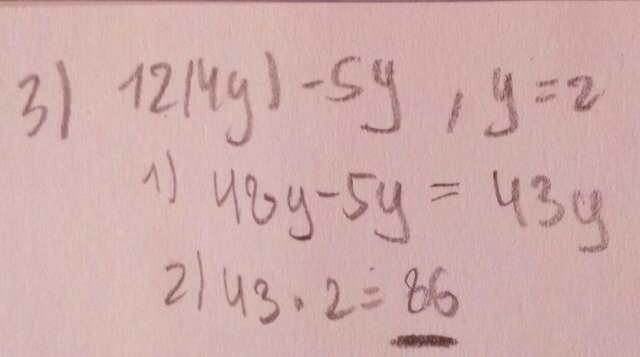 3) 12(4y) - 5y , y = 2
1) 48y - 5y = 43y
2) 43 . 2 = 86